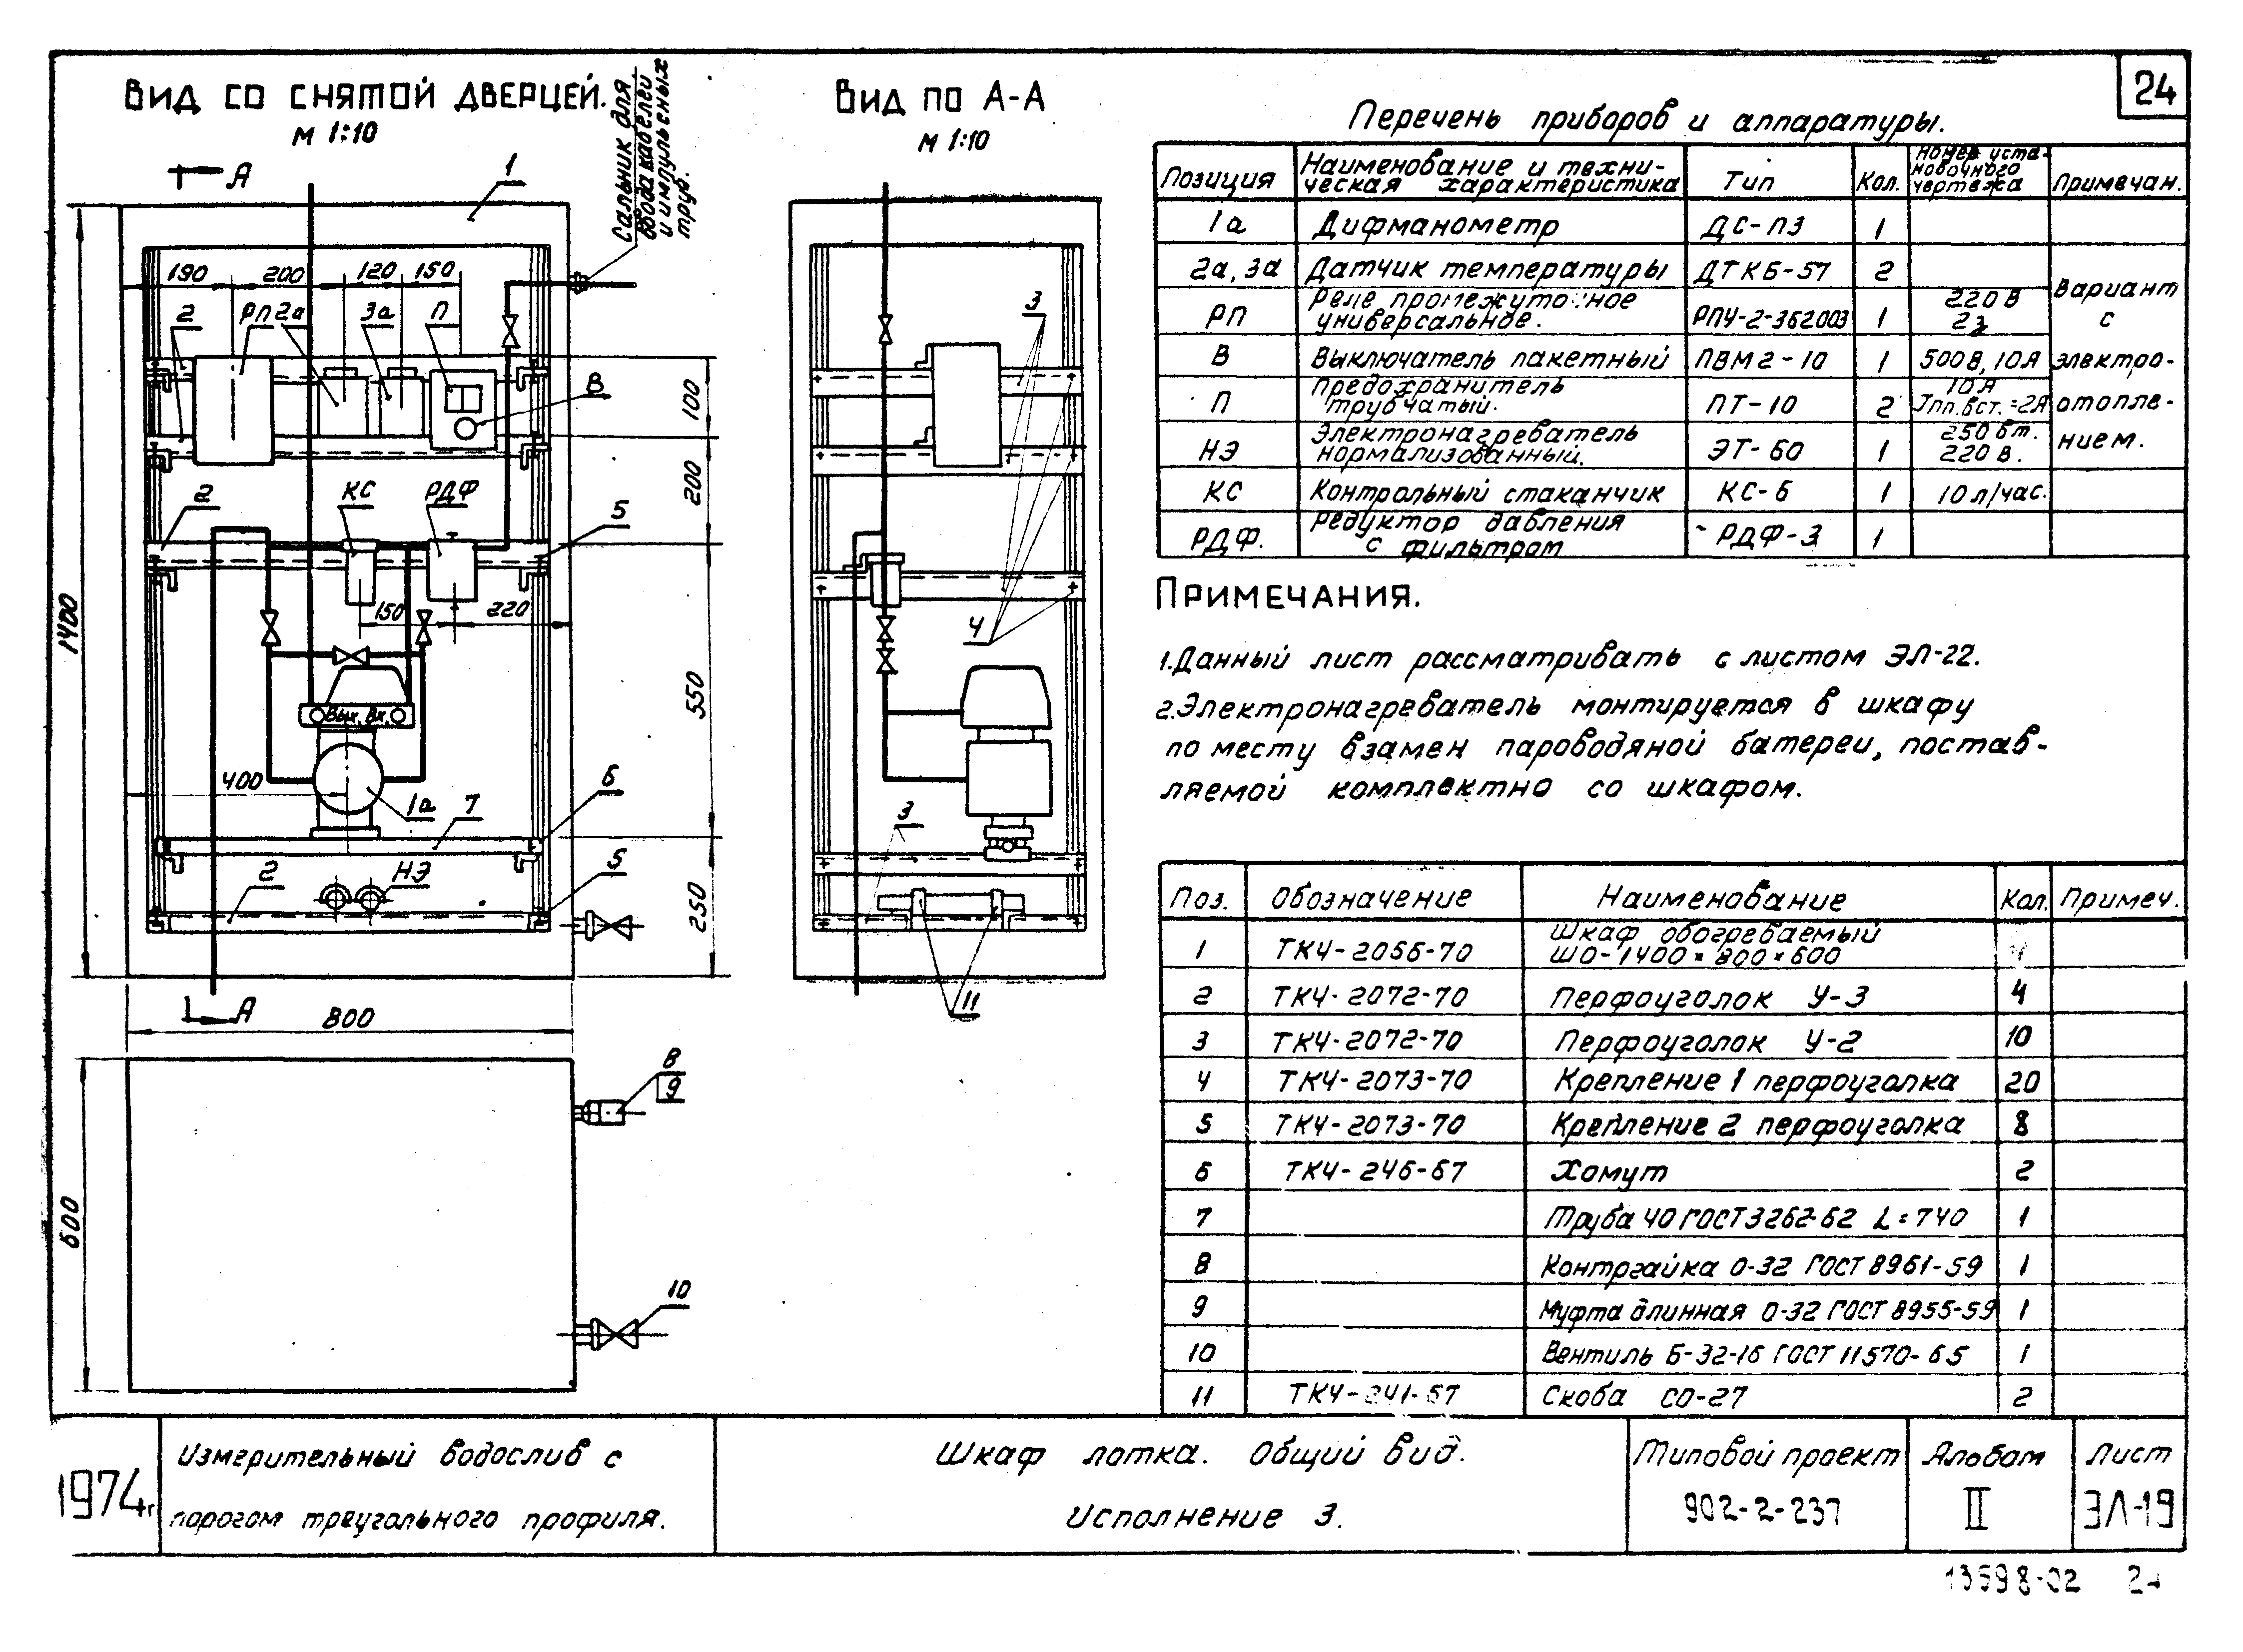 24
Вид со снятой дверцей.
М 1:10
Сальник для
ввода кабелей
и импульсных
труб.
А
1
190
200
120
150
2
РП
2а
3а
П
В
100
200
2
КС
РДФ
5
150
220
1400
550
Вых.
Вх.
400
1а
7
6
2
НЭ
5
250
А
800
600
8
9
10
Вид по А-А
М 1:10
3
4
3
11
Перечень приборов и аппаратуры.
Позиция Наименование и техни- ческая характеристика Тип Кол. Номер уста- новочного чертежа Примечан.
1а Дифманометр ДС-ПЗ 1
2а, 3а Датчик температуры ДТКБ-57 2
РП Реле промежуточное универсальное. РПУ-2-362003 1 220 В 2з
В Выключатель пакетный ПВМ2-10 1 500В, 10А
П Предохранитель трубчатый. ПТ-10 2 10А Iпл.вст.=2А
НЭ Электронагреватель нормализованный. ЭТ-60 1 250 вт. 220 в.
КС Контрольный стаканчик КС-6 1 10 л/час.
РДФ. Редуктор давления с фильтром РДФ-3 1
Вариант
с
электро-
отопле-
нием.
Примечания.
1.Данный лист рассматривать с листом ЭЛ-22.
2.Электронагреватель монтируется в шкафу
по месту взамен пароводяной батереи, постав-
ляемой комплектно со шкафом.
Поз. Обозначение Наименование Кол. Примеч.
1 ТКЧ-2056-70 Шкаф обогреваемый ШО-1400×800×600 1
2 ТКЧ-2072-70 Перфоуголок У-3 4
3 ТКЧ-2072-70 Перфоуголок У-2 10
4 ТКЧ-2073-70 Крепление 1 перфоуголка 20
5 ТКЧ-2073-70 Крепление 2 перфоуголка 8
6 ТКЧ-246-67 Хомут 2
7 Труба 40 ГОСТ 3262-62 L=740 1
8 Контргайка О-32 ГОСТ 8961-59 1
9 Муфта длинная О-32 ГОСТ 8955-59 1
10 Вентиль Б-32-16 ГОСТ 11570-65 1
11 ТКЧ-241-67 Скоба СО-27 2
1974г.
Измерительный водослив с
порогом треугольного профиля.
Шкаф лотка. Общий вид.
Исполнение 3.
Типовой проект
902-2-237
Альбом
II
Лист
ЭЛ-19
13598-02